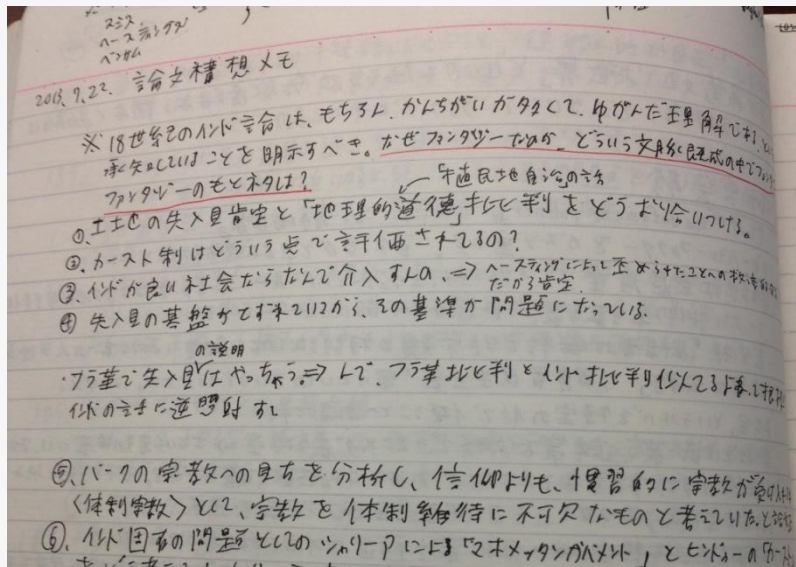 スミス
ヘースティングズ
ベンサム
2013.9.22. 論文構想メモ
※18世紀のインド言論は、もちろん、かんちがいが多くて、ゆがんだ理解である
承知していることを明示すべき。なぜファンタジーなのか、どういう文脈既成の中でファンタ
ファンタジーのもとネタは?
「植民地自治」の話
①.土地の先入見肯定と「地理的道徳」批判をどうおり合いつける。
②.カースト制はどういう点で評価されてるの?
③.インドが良い社会ならなんで介入すんの、⇒ヘースティングによって歪められたことへの
だから肯定
④ 先入見の基盤がてずれているから、その基準が問題になっている。
の説明
・フラ革で先入見はやっちゃう。⇒んで、フラ革批判とインド批判似てるよ
インドの話に逆照射す
⑤.バークの宗教への見方を分析し、信仰よりも、慣習的に宗教が
〈体制宗教〉として、宗教を体制維持に不可欠なものと考えていた、と
⑥.インド固有の問題としてのシャリーアによる「マホメッタンガバメント」とヒンドゥーの「カースト